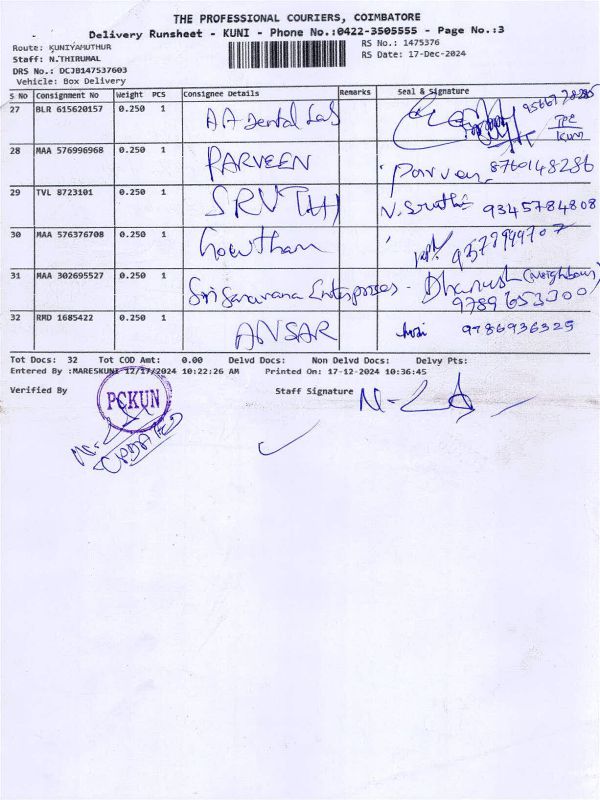 THE PROFESSIONAL COURIERS, COIMBATORE
Delivery Runsheet - KUNI - Phone No.:0422-3505555 - Page No.:3
Route: KUNIYAMUTHUR
RS No.: 1475376
Staff: N.THIRUMAL
RS Date: 17-Dec-2024
DRS No.: DCJB147537603
Vehicle: Box Delivery
S No Consignment No Weight PCS Consignee Details Remarks Seal & Signature
27 BLR 615620157 0.250 1 AA Dental Lab
28 MAA 576996968 0.250 1 PARVEEN Parveen 8760148286
29 TVL 8723101 0.250 1 SRUTHI N. Sruthi 9345784808
30 MAA 576376708 0.250 1 Gowtham
31 MAA 302695527 0.250 1 Sri Saravana Enterprises - Dhanush (Neighbour)
9789653300
32 RMD 1685422 0.250 1 ANSAR 9786936325
Tot Docs: 32 Tot COD Amt: 0.00 Delvd Docs: Non Delvd Docs: Delvy Pts:
Entered By :MARESKUNI 12/17/2024 10:22:26 AM Printed On: 17-12-2024 10:36:45
Verified By
PCKUN
Staff Signature
UPDATED